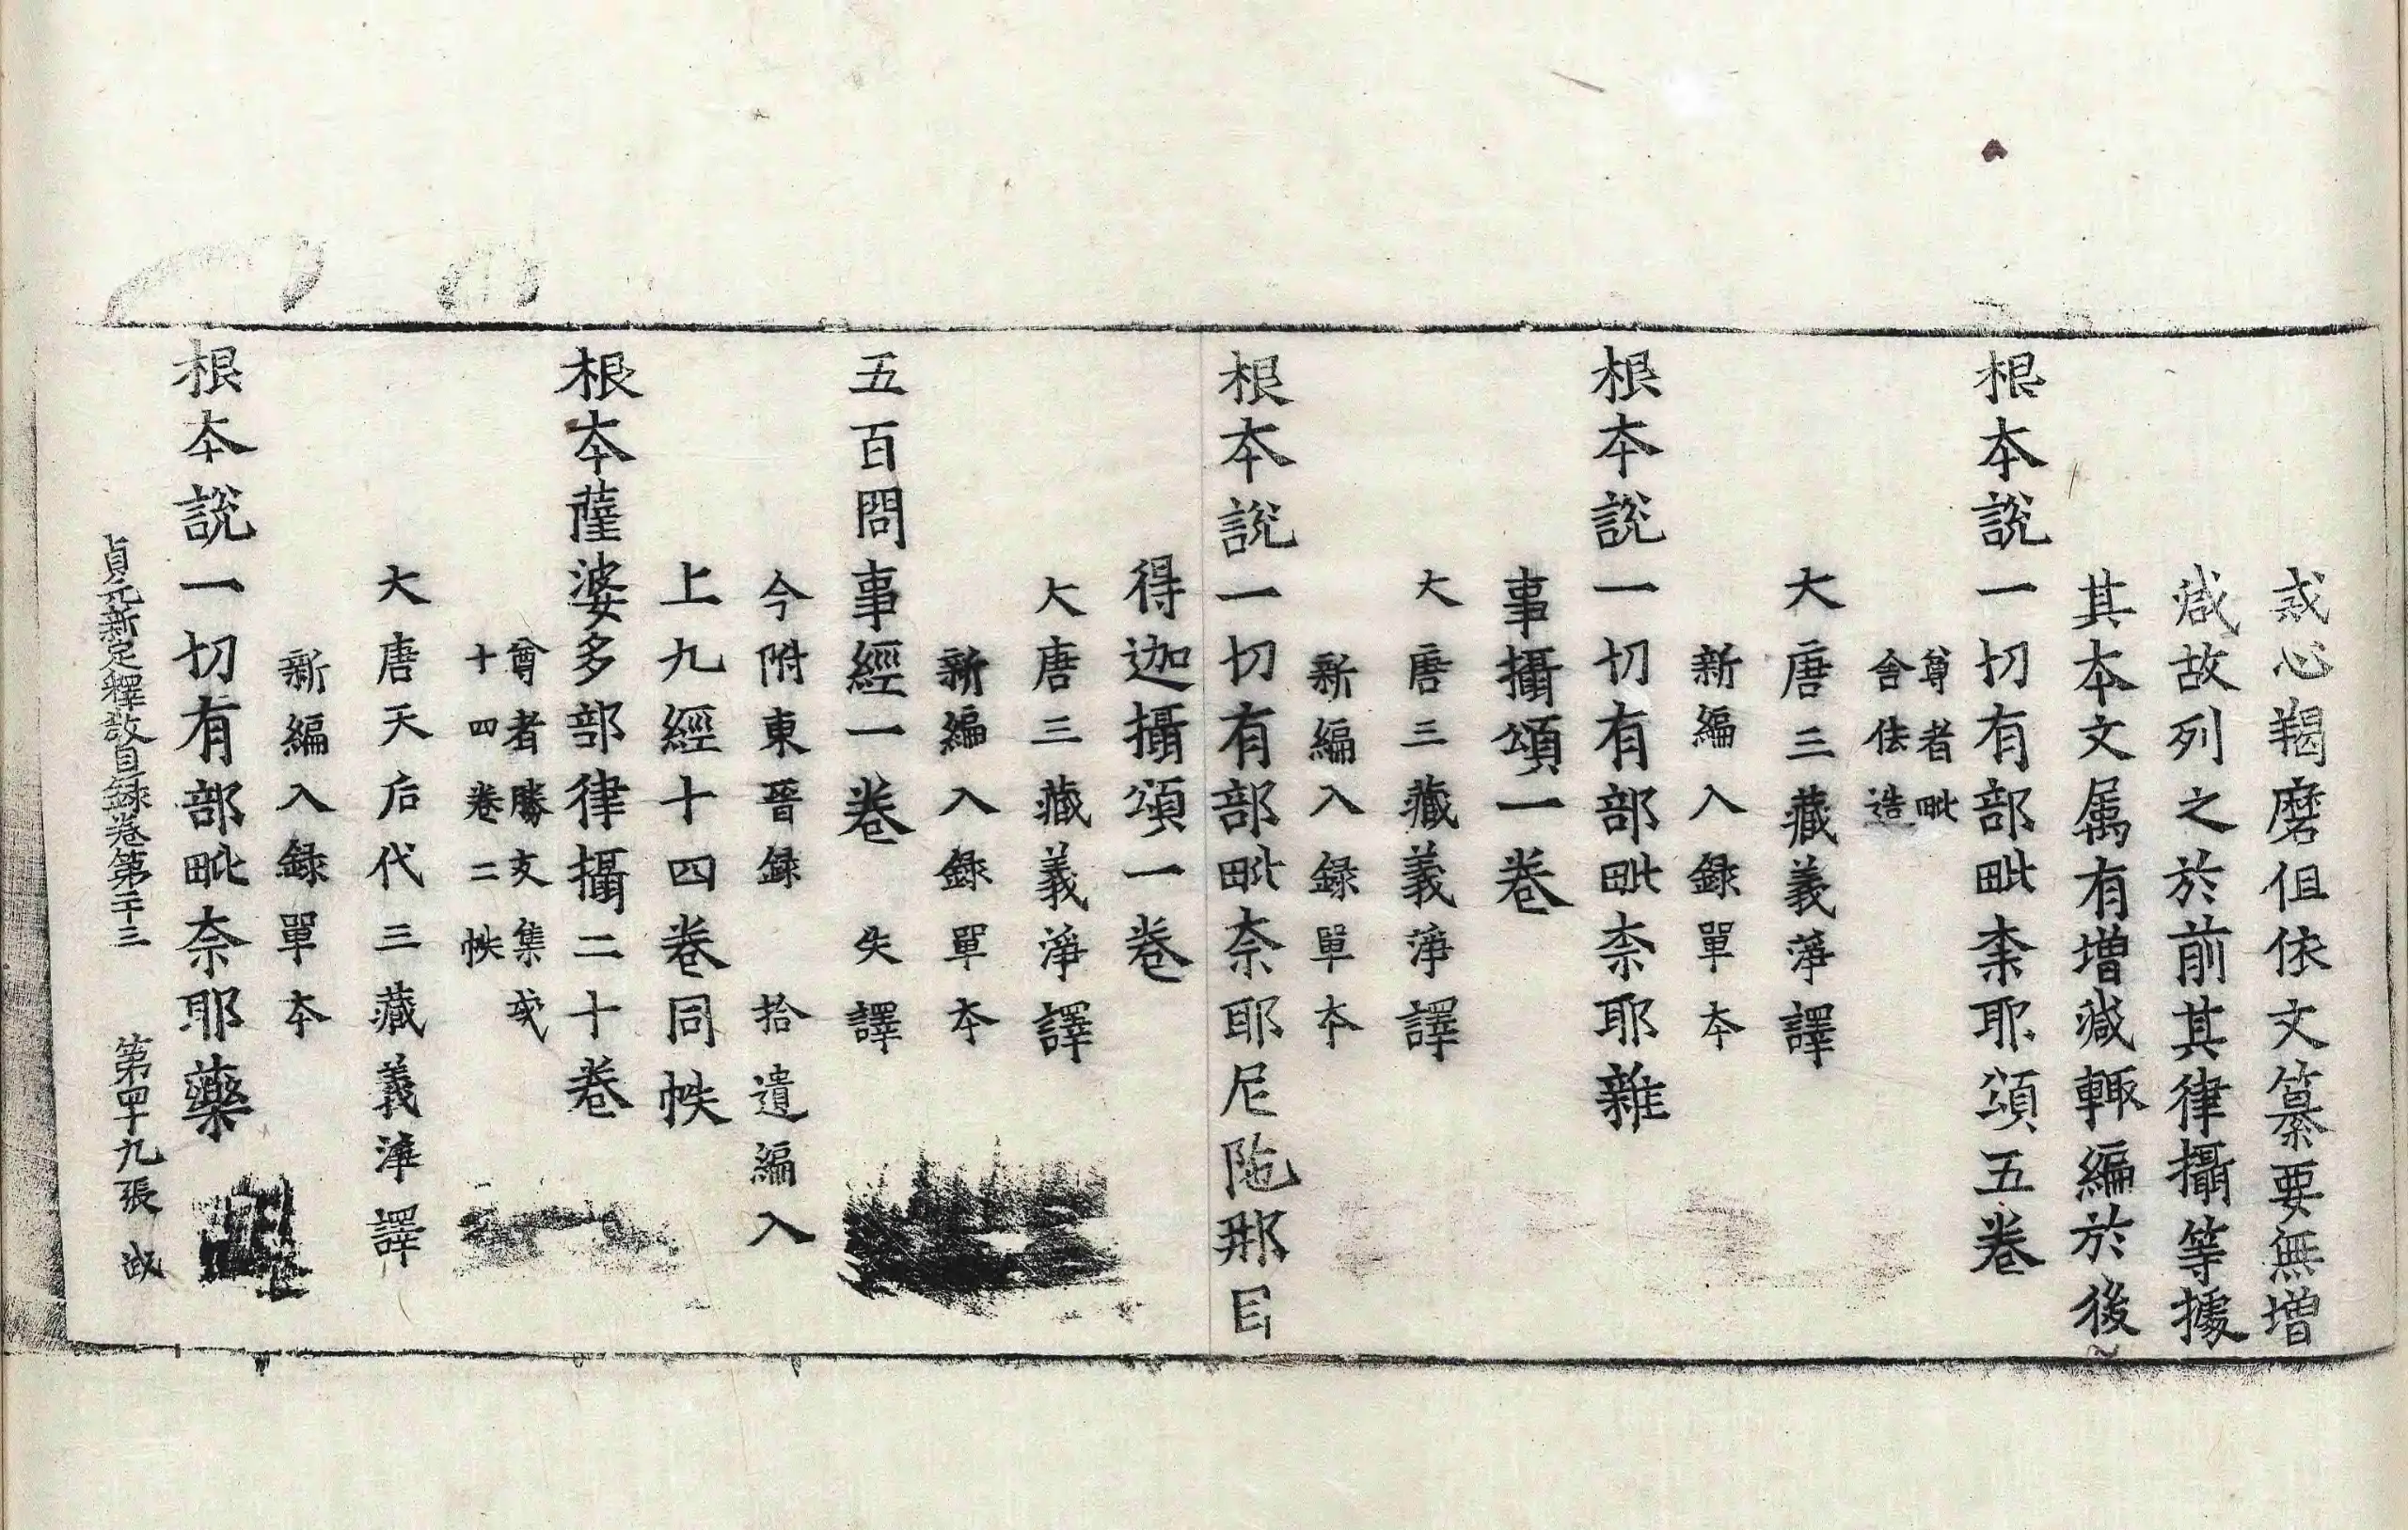 惑心羯磨但依文纂要無增
減故列之於前其律攝等據
其本文属有增減輙編於後
根本說一切有部毗柰耶頌五卷
尊者毗
舍佉造
大唐三藏義淨譯
新編入錄單本
根本說一切有部毗柰耶雜
事攝頌一卷
大唐三藏義淨譯
新編入錄單本
根本說一切有部毗柰耶尼陁那目
得迦攝頌一卷
大唐三藏義淨譯
新編入錄單本
五百問事經一卷 失譯
今附東晉錄 拾遺編入
上九經十四卷同帙
根本薩婆多部律攝二十卷
尊者勝友集或
十四卷二帙
大唐天后代三藏義淨譯
新編入錄單本
根本說一切有部毗奈耶藥
貞元新定釋教目錄卷第二十三 第四十九張